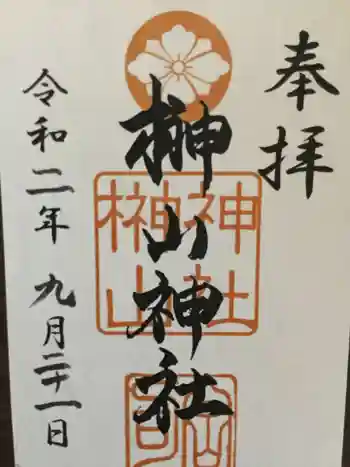 奉拝
榊山神社
榊山
神社
令和二年九月二十一日